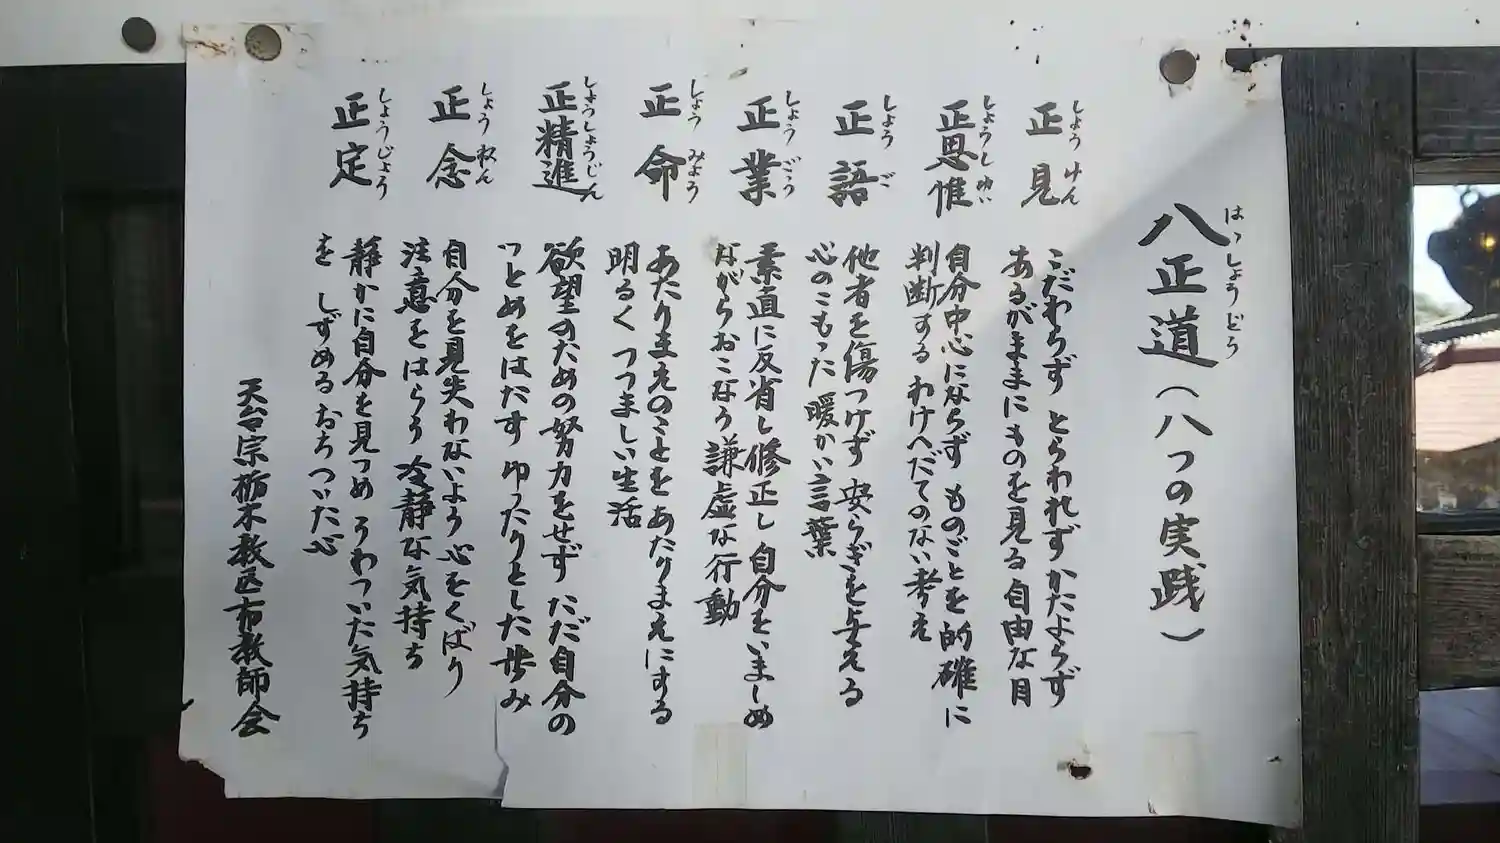 八正道（八つの実践）
はっしょうどう
正見
しょうけん
こだわらず とらわれず かたよらず
あるがままにものを見る 自由な目
正思惟
しょうしゆい
自分中心にならず ものごとを的確に
判断する わけへだてのない考え
正語
しょうご
他者を傷つけず 安らぎを与える
心のこもった 暖かい言葉
正業
しょうごう
素直に反省し修正し 自分をいましめ
ながらおこなう 謙虚な行動
正命
しょうみょう
あたりまえのことをあたりまえにする
明るく つつましい生活
正精進
しょうしょうじん
欲望のための努力をせず ただ自分の
つとめをはたす ゆったりとした歩み
正念
しょうねん
自分を見失わないよう 心をくばり
注意をはらう 冷静な気持ち
正定
しょうじょう
静かに自分を見つめ うわついた気持ち
を しずめる おちついた心
天台宗栃木教区布教師会